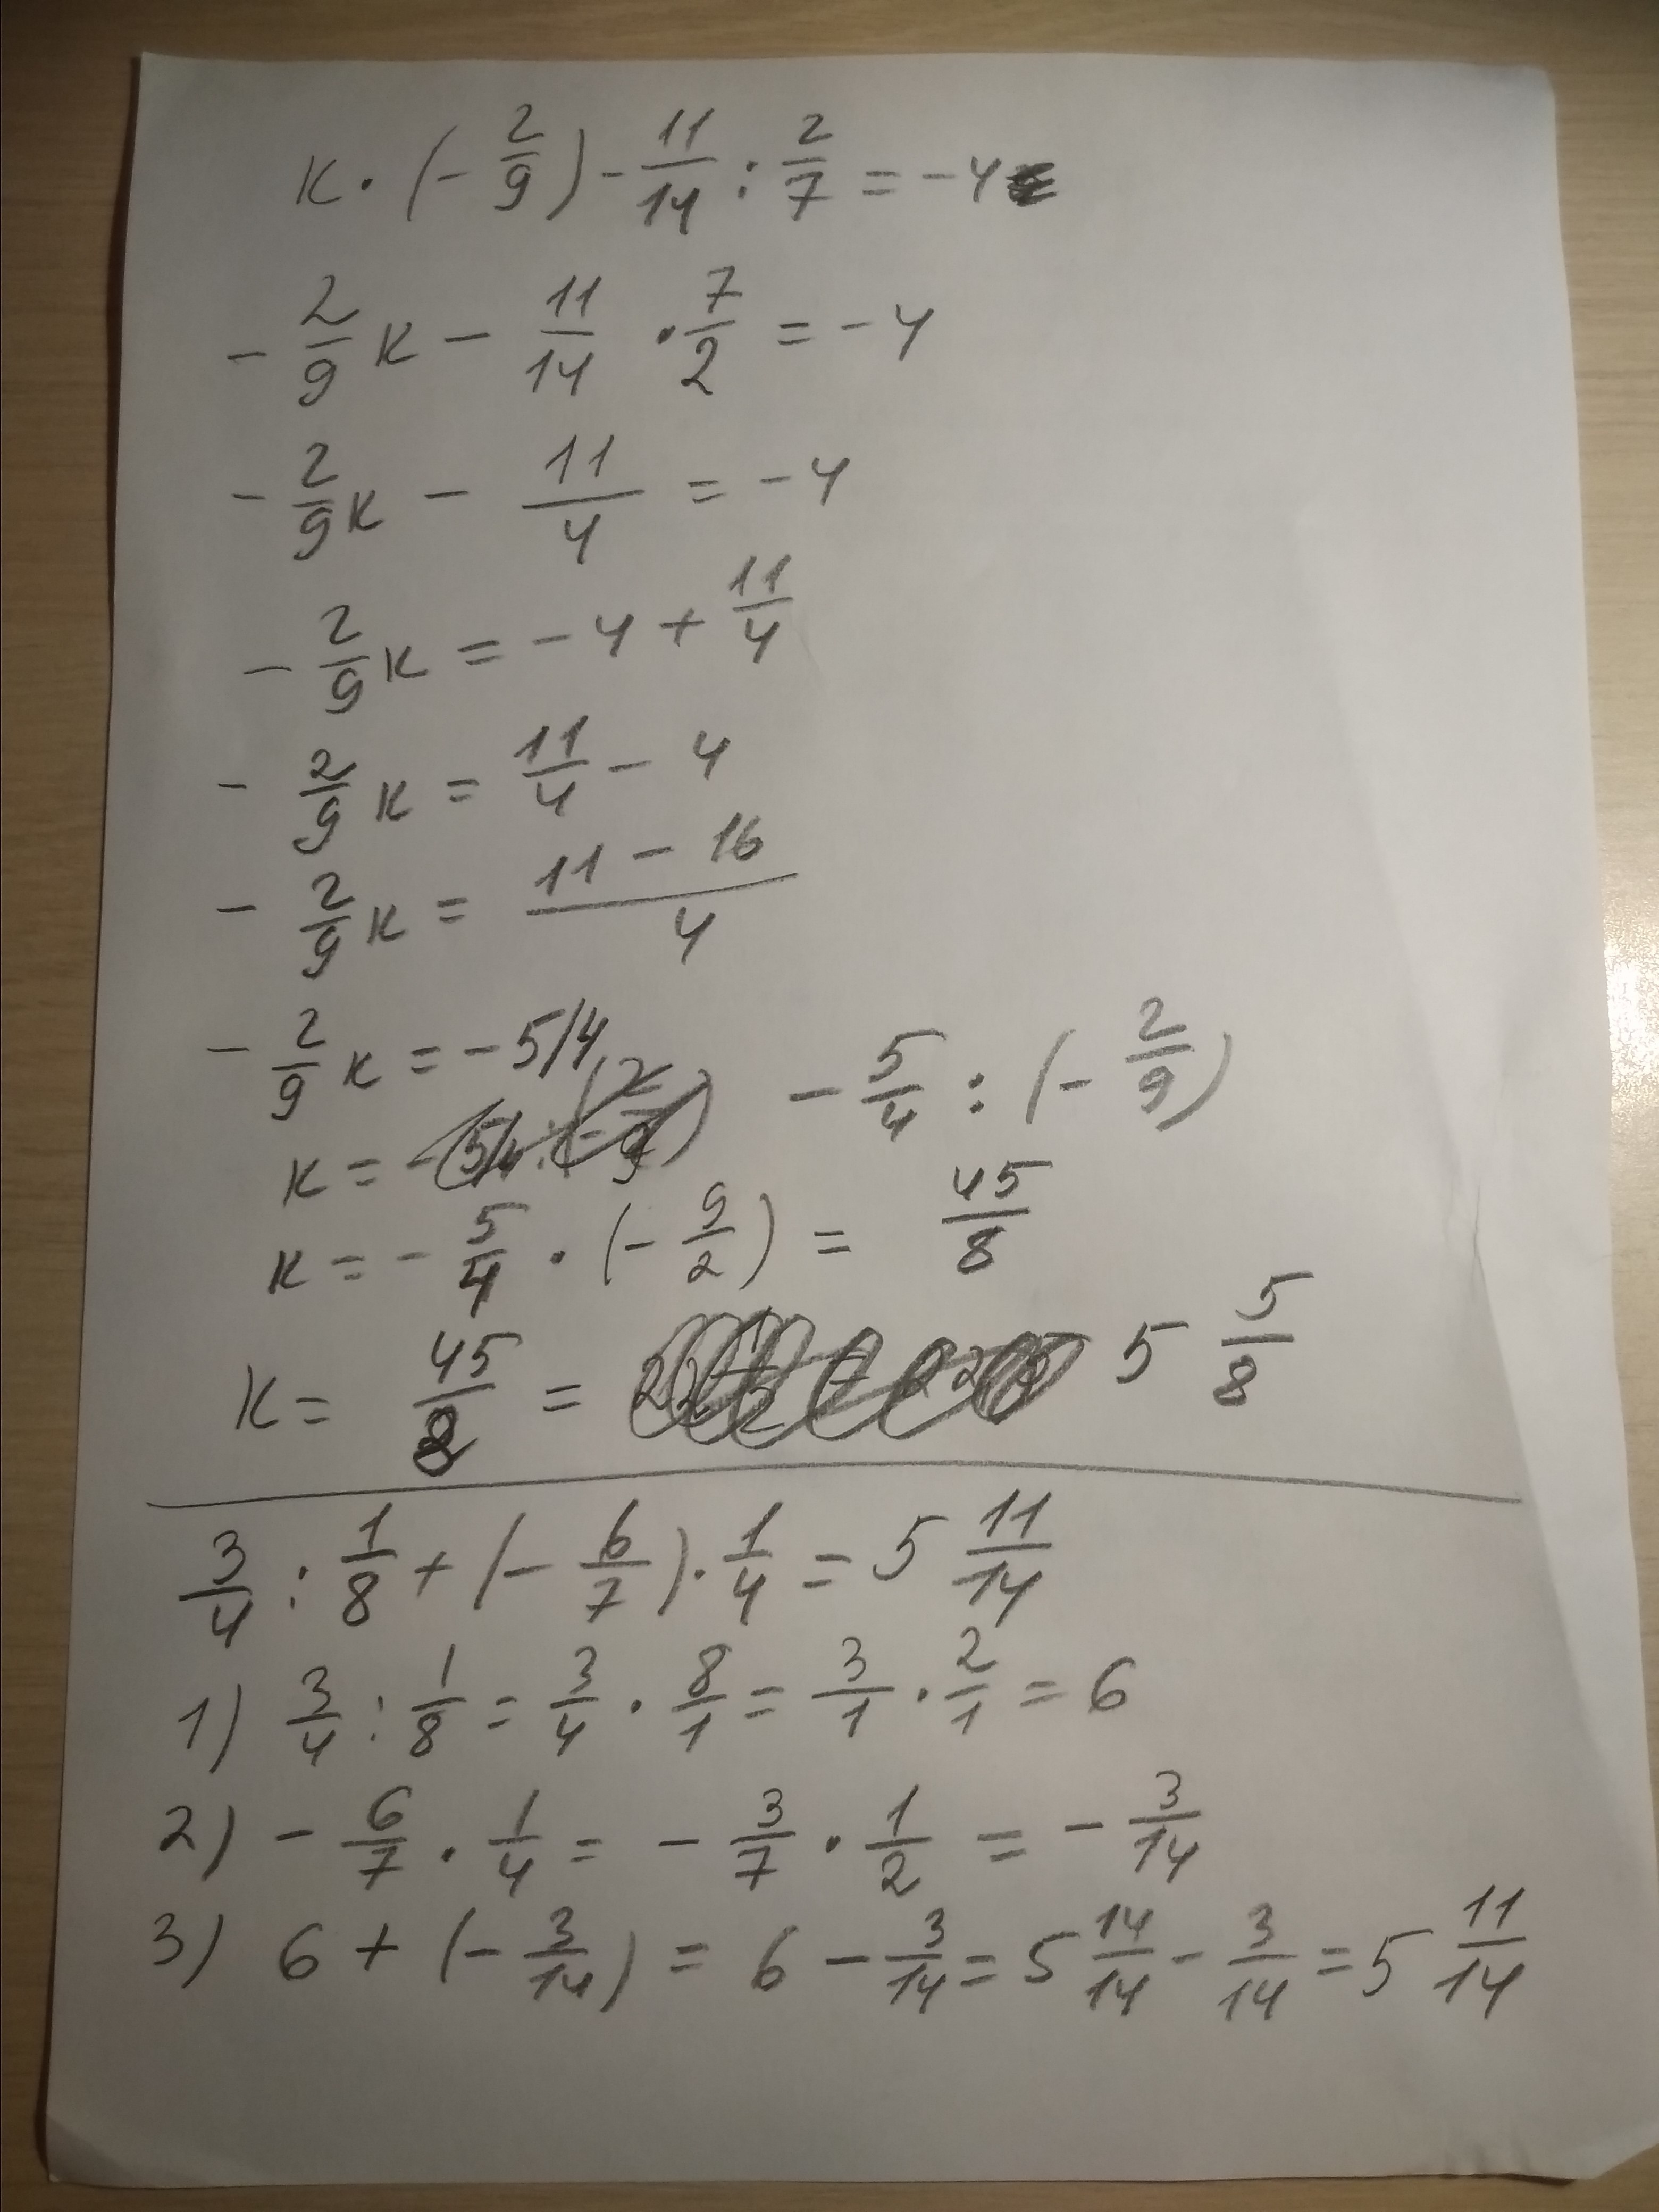 к · (- 2/9) - 11/14 : 2/7 = -4
- 2/9 к - 11/14 · 7/2 = -4
- 2/9 к - 11/4 = -4
- 2/9 к = -4 + 11/4
- 2/9 к = 11/4 - 4
- 2/9 к = (11 - 16)/4
- 2/9 к = -5/4
к = - 5/4 : (- 2/9)
к = - 5/4 · (- 9/2) = 45/8
к = 45/8 = 5 5/8
3/4 : 1/8 + (- 6/7) · 1/4 = 5 11/14
1) 3/4 : 1/8 = 3/4 · 8/1 = 3/1 · 2/1 = 6
2) - 6/7 · 1/4 = - 3/7 · 1/2 = - 3/14
3) 6 + (- 3/14) = 6 - 3/14 = 5 14/14 - 3/14 = 5 11/14